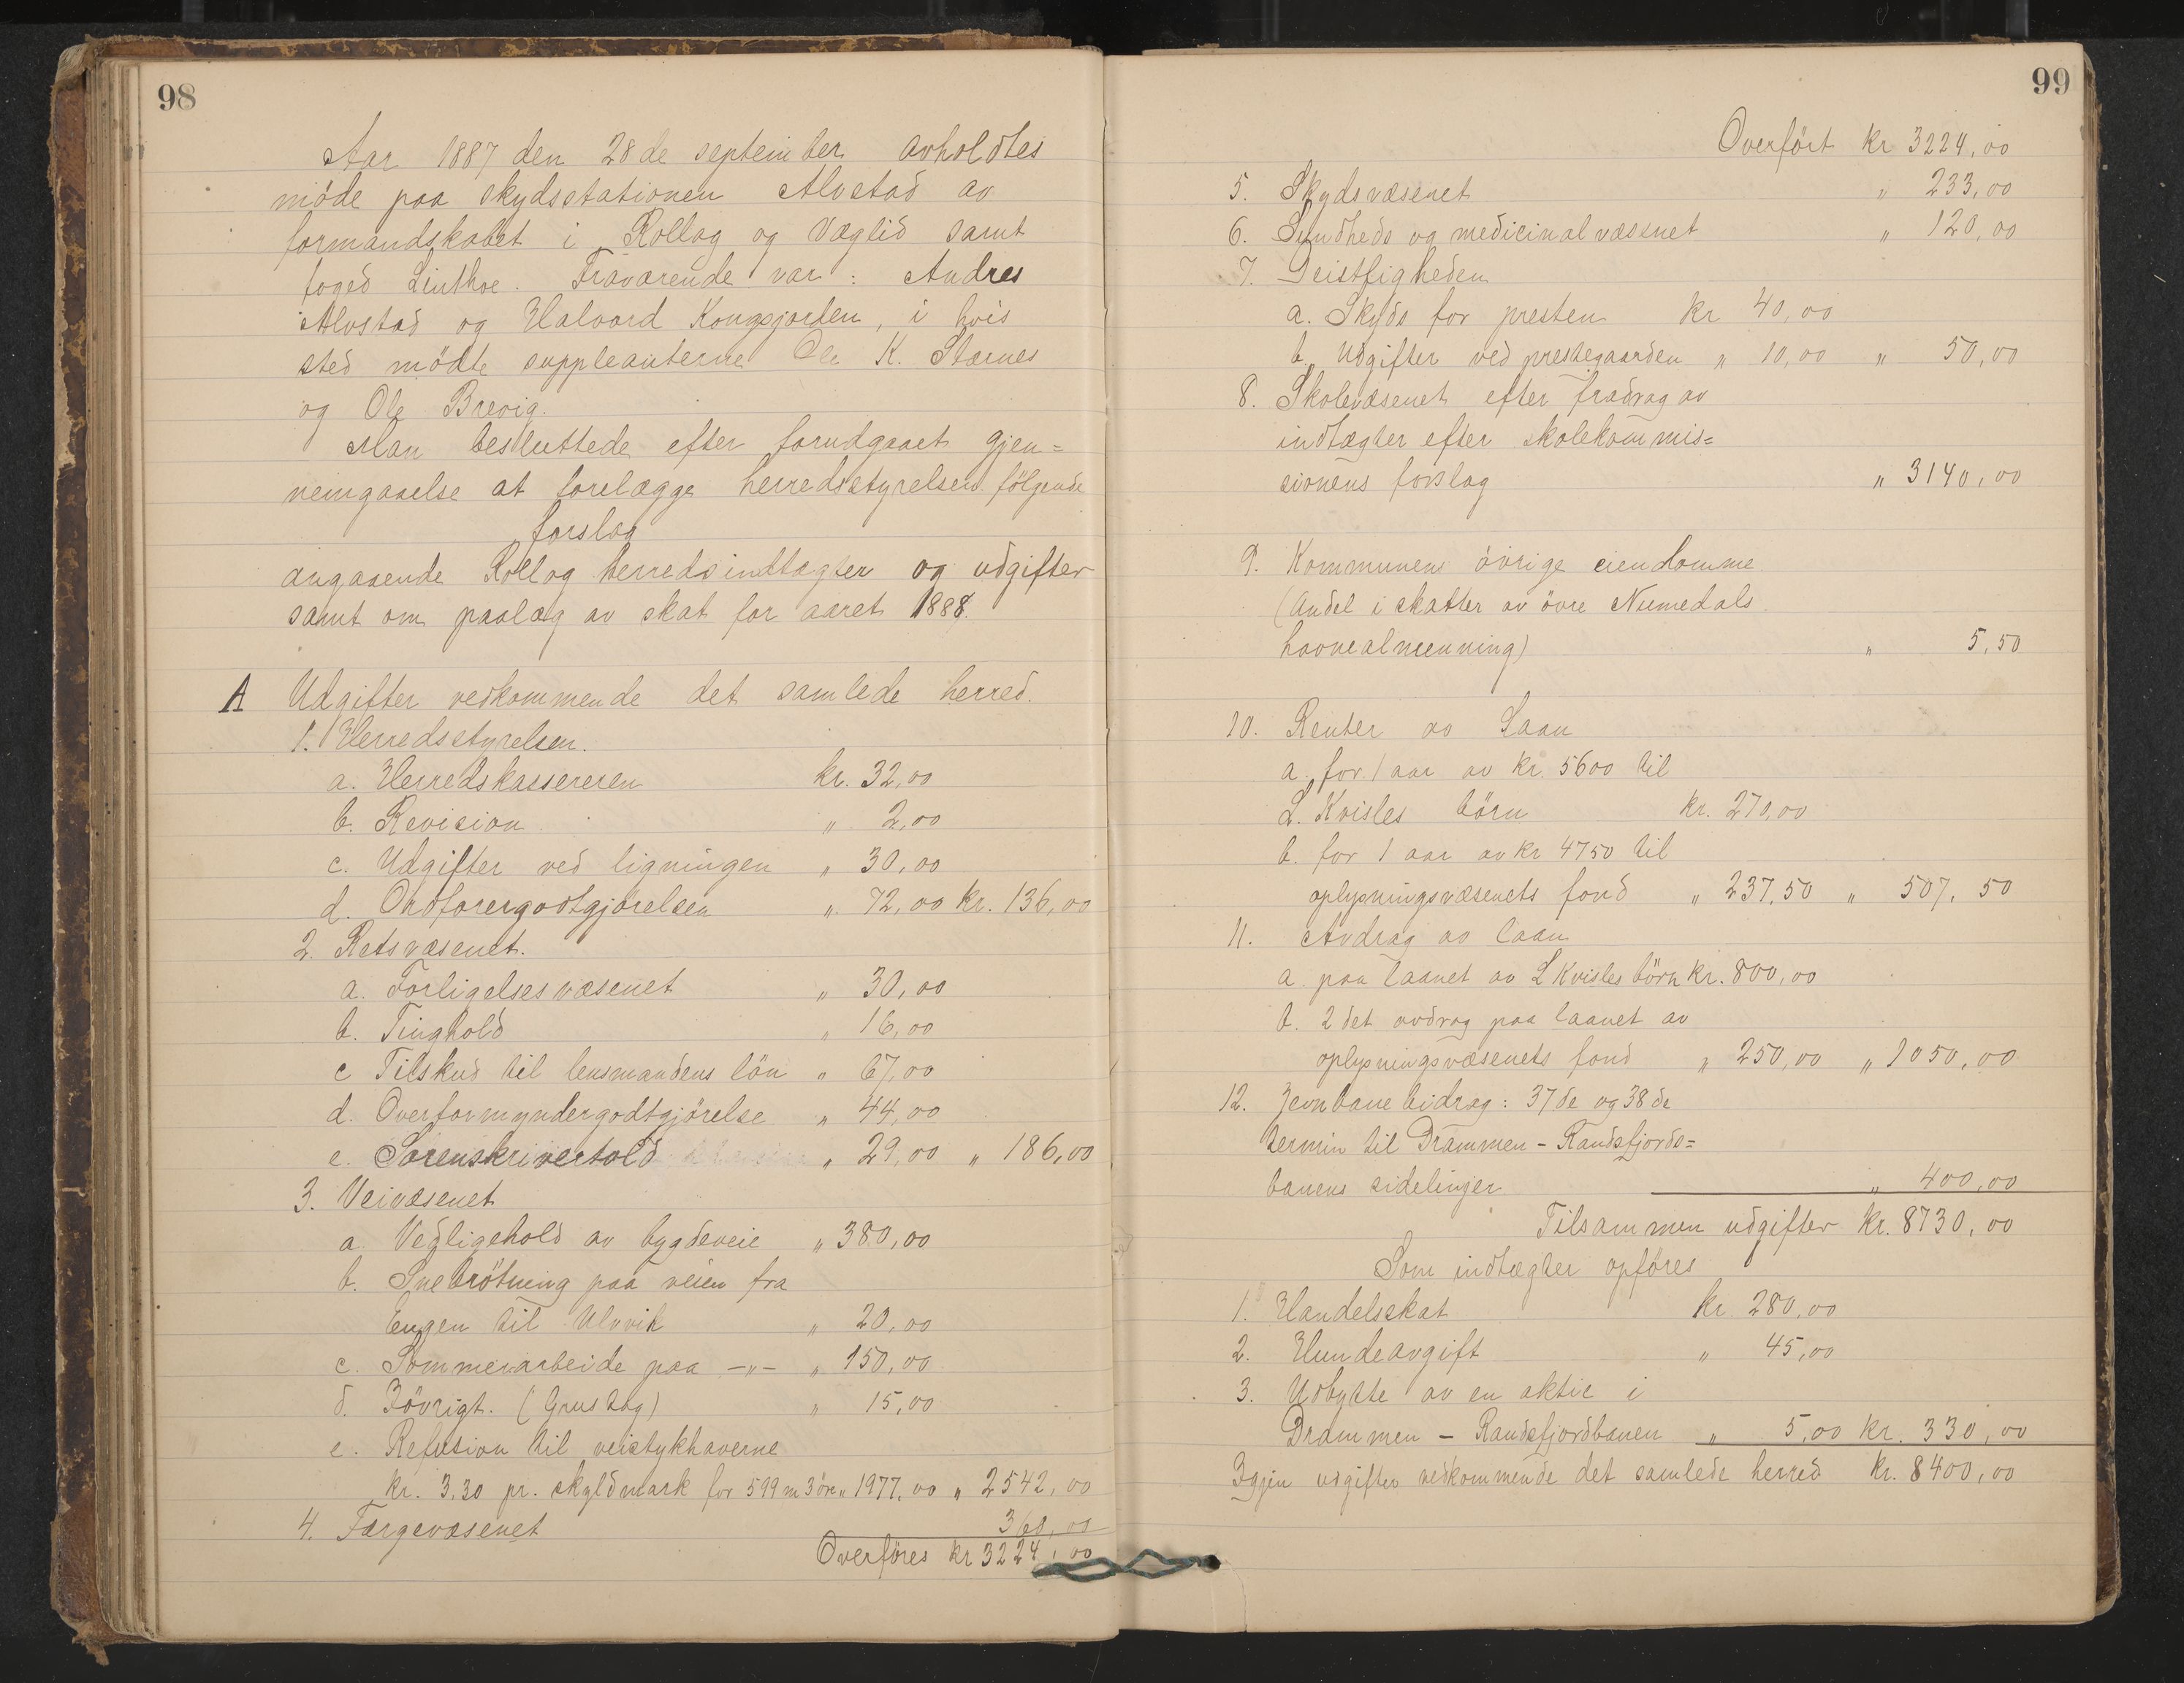 98
Aar 1887 den 28de september avholdtes
möde paa skydsstationen Alvstad av
formandskabet i Rollag og Væglid samt
foged Linthoe. Fraværende var: Andres
Alvstad og Halvord Kongsjorden, i hvis
sted mödte suppleanterne Ole K. Stærnes
og Ole Brevig.
Man besluttede efter forudgaaet gjen=
nemgaaelse at forelægge herredsstyrelsen fölgende
forslag
angaaende Rollag herredsindtægter og udgifter
samt om paalæg av skat for aaret 1888.
A Udgifter vedkommende det samlede herred.
1. Herredsstyrelsen.
a. Herredskassereren kr. 32,00
b. Revision " 2,00
c. Udgifter ved ligningen " 30,00
d. Ordförergodtgjörelsen " 72,00 kr. 136,00
2. Retsvæsenet.
a. Forligelsesvæsenet " 30,00
b. Tinghold " 16,00
c Tilskud til lensmandens lön " 67,00
d. Overformyndergodtgjörelse " 44,00
e. Sorenskrivertold " 29,00 " 186,00
3. Veivæsenet
a. Vedligehold av bygdeveie " 380,00
b. Snebrötning paa veien fra
Engen til Ulvvik " 20,00
c. Sommerarbeide paa -"- " 150,00
d. Iövrigt. (Grustag) " 15,00
e. Refusion til veistykhaverne
kr. 3.30 pr. skyldmark for 599 m 3 öre " 1977,00 " 2542,00
4. Færgevæsenet 360,00
Overföres kr 3224,00
99
Overfört kr 3224,00
5. Skydsvæsenet " 233,00
6. Sundheds og medicinalvæsenet " 120,00
7. Geistligheden
a. Skyds for presten kr 40,00
b. Udgifter ved prestegaarden " 10,00 " 50,00
8. Skolevæsenet efter fradrag av
indtægter efter skolekommis=
sionens forslag " 3140,00
9. Kommunens övrige eiendomme
(Andel i skatter av övre Numedals
havnealmenning) " 5,50
10. Renter av Laan
a. for 1 aar av kr. 5600 til
L. Kvisles börn kr. 270,00
b. for 1 aar av kr 4750 til
oplysningsvæsenets fond " 237,50 " 507,50
11. Avdrag av laan
a paa laanet av L Kvisles börn kr. 800,00
b. 2det avdrag paa laanet av
oplysningsvæsenets fond " 250,00 " 1050,00
12. Jernbanebidrag: 37de og 38de
termin til Drammen - Randsfjords=
banens sidelinjer " 400,00
Tilsammen udgifter kr. 8730,00
Som indtægter opföres
1. Handelsskat kr. 280,00
2. Hundeavgift " 45,00
3. Udbytte av en aktie i
Drammen - Randsfjordbanen " 5,00 kr. 330,00
Igjen udgifter vedkommende det samlede herred kr. 8400,00